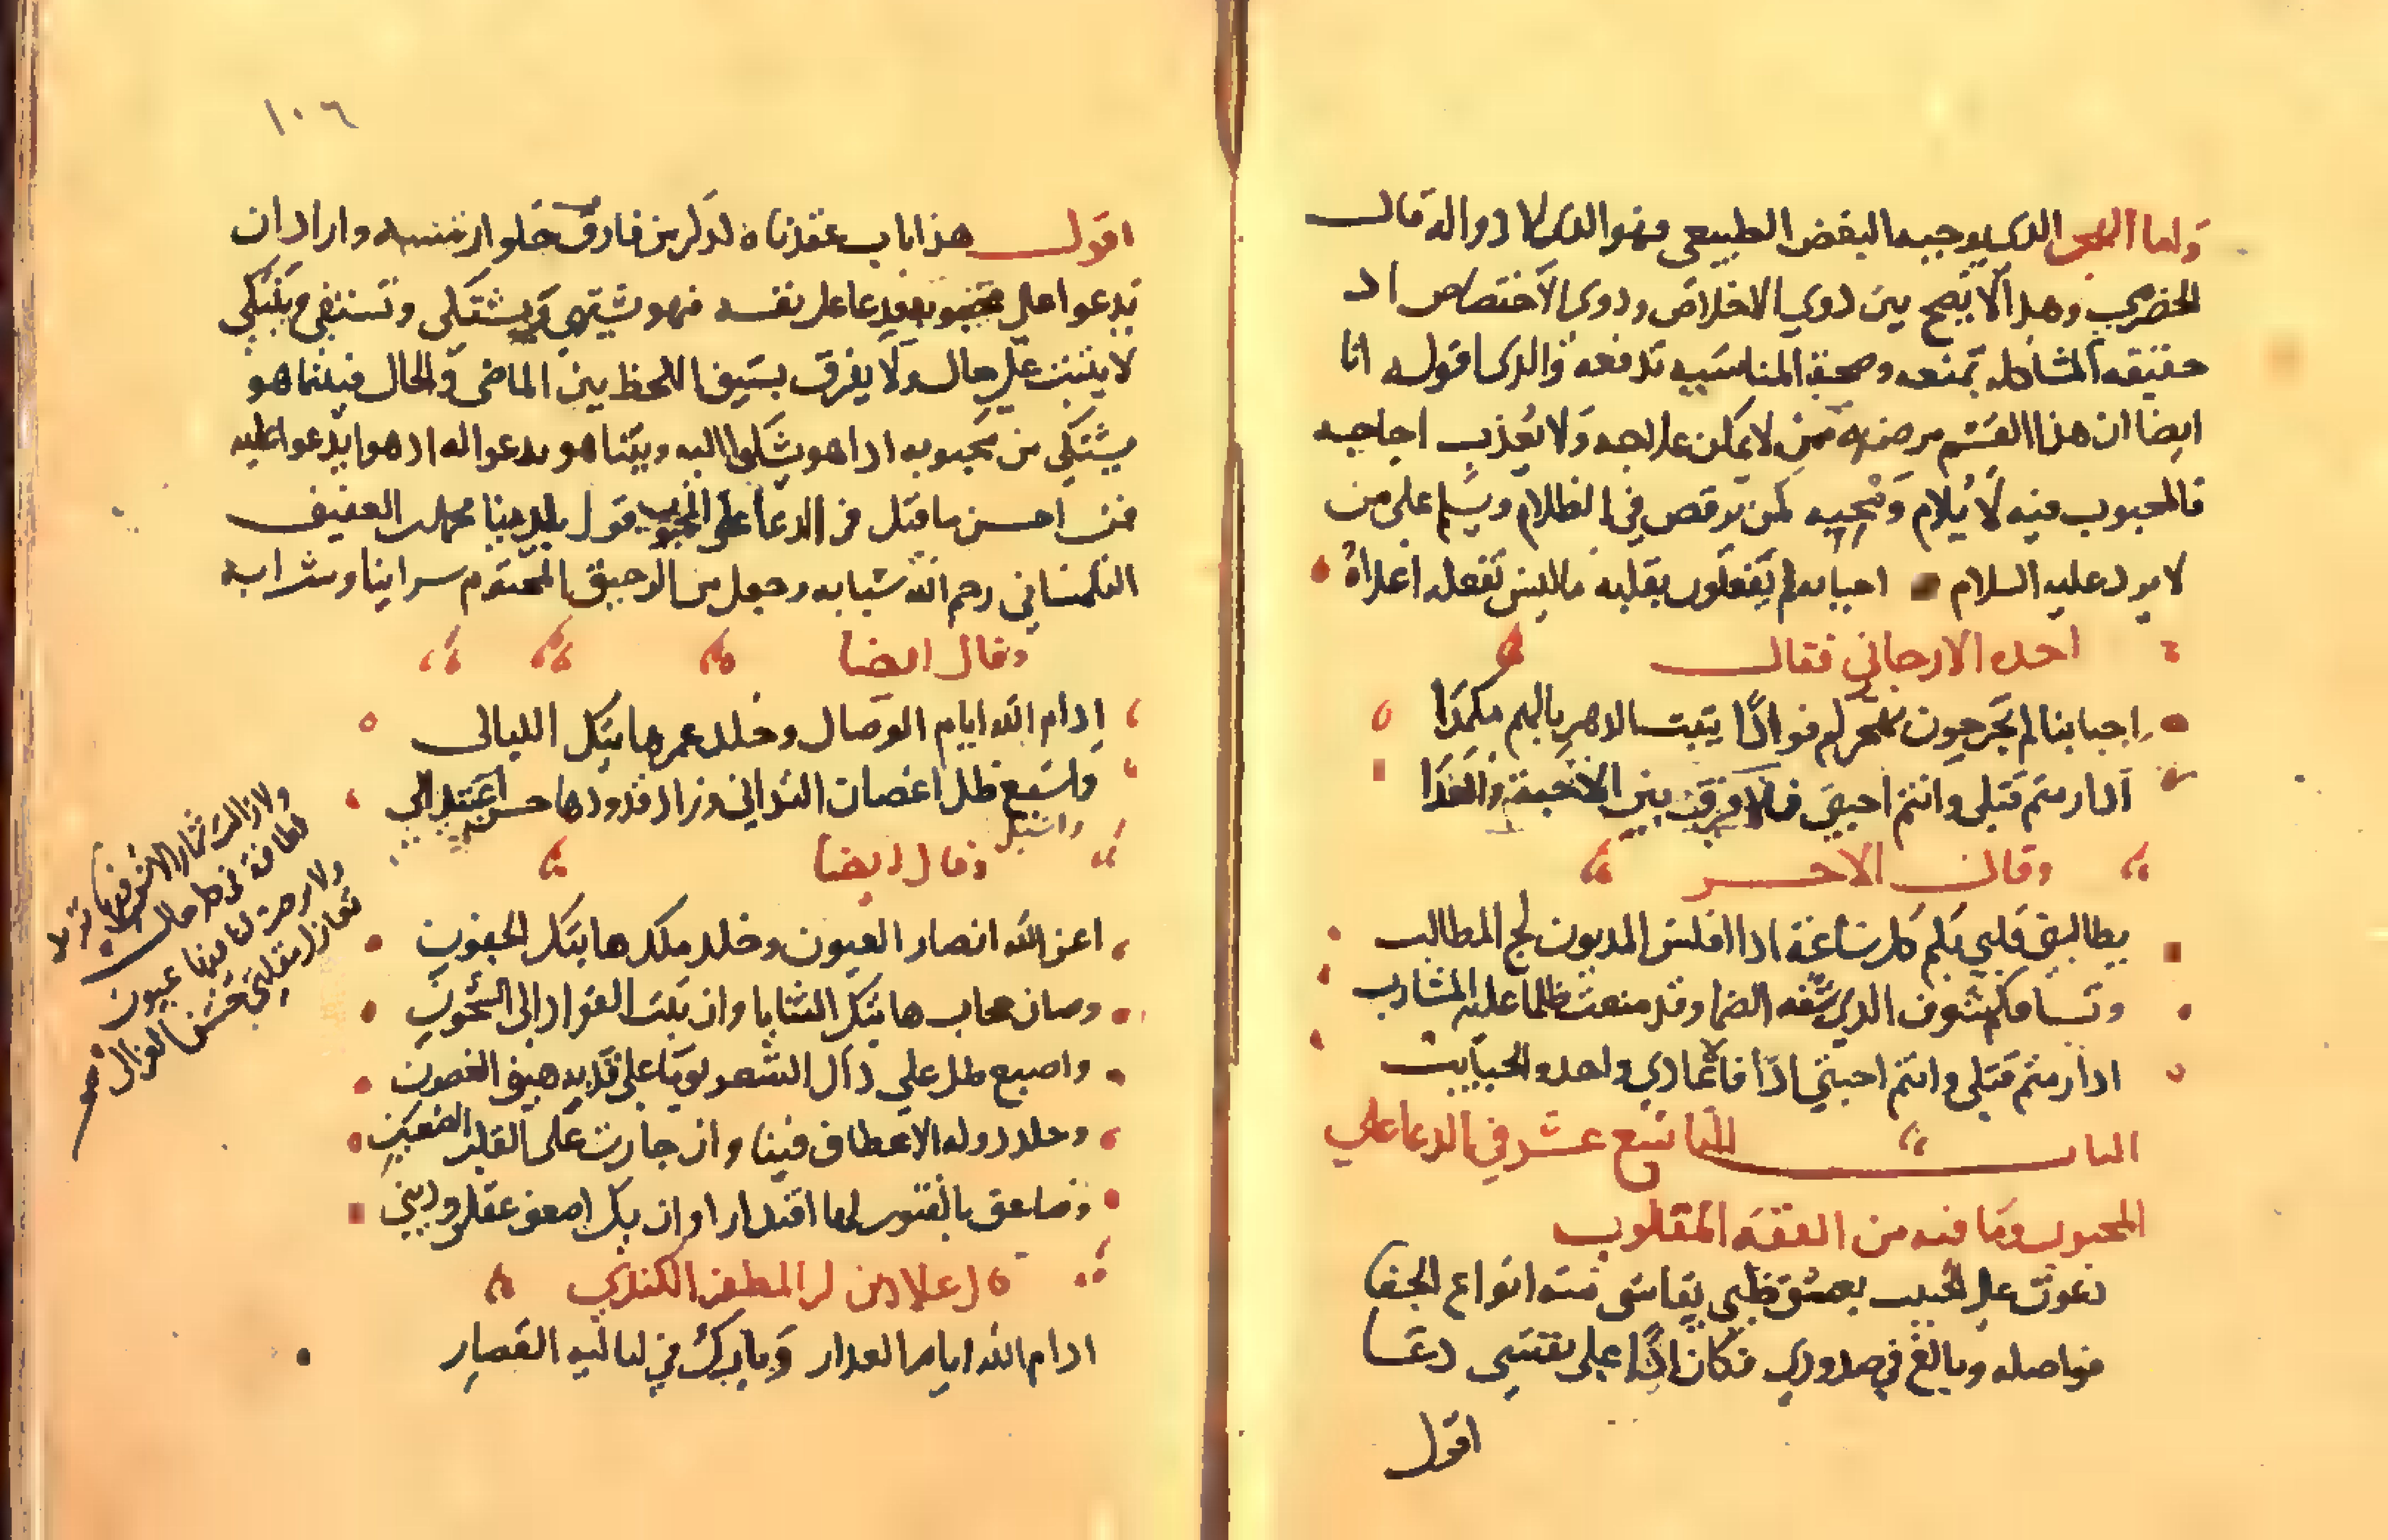 واما الهجر الذي يوجبه البغض الطبيعي فهو الذي لا دوا له قال
الحضري وهذا لا يصح بين ذوي الاخلاص وذوي الاختصاص اذ
حقيقة المشاكله تمنعه وصحة المناسبه تدفعه والذي اقوله انا
ايضا ان هذا القسم مرضه من لا يمكن علاجه ولا يعذب اجاجه
فالمحبوب فيه لا يلام ومحبه كمن يرقص في الظلام ويسلم على من
لا يرد عليه السلام احبابه لم يفعلون بقلبه ماليس تفعله اعداه
اخذه الارجاني فقال
احبابنا لم تجرحون بهجركم فوادًا يبيت الدهر بالهم مكمدا
اذا رمتم قتلي وانتم احبتي فلا فرق بين الاحبة والعدا
وقال الاخر
يطالبني قلبي بكم كل ساعة اذا افلس المديون لج المطالب
الذي شفه الضما وقد منعت ظلما عليه المشارب
اذا رمتم قتلي وانتم احبتي اذًا فالاعادي واحد والحبايب
الباب التاسع عشر في الدعا على
المحبوب وما فيه من الفقه المقلوب
دعوت على الحبيب بعشق ظبي يقاسي منه انواع الجفا
فواصله وبالغ في صدودي فكان اذًا على نفسي دعا
اقول
١٠٦
اقول هذا باب عقدناه لذكر من فارق خلو ارتمسه واراد ان
يدعوا على محبوبه فدعا على نفسه فهو يشتهي ويشتكي وتستقي ويبكي
لا يثبت على حال ولا يفرق بسيف اللحظ بين الماضي والحال فبينما هو
يشتكي من محبوبه اذا هو يشكوا اليه وبينا هو يدعوا له اذ هوا يدعوا عليه
فمن احسن ما قيل في الدعا على المحبوب قول محمد بن العفيف
التلمساني رحم الله شبابه وجعل من الرحيق المختوم سراينا وشرابه
وقال ايضا
ادام الله ايام الوصال وخلد عمر هاتيك الليالي
واسبغ ظل اغصان التداني وزاد قدودها حسن اعتدالي
واسبل
وقال ايضا
اعز الله انصار العيون وخلد ملك هاتيك الجفون
وصان حجاب هاتيك الثنايا وان ثنت الفواد الى الشجون
واصبع ظل على ذاك الشعر يوما على قد به هيف الغصون
وخلد دولة الاعطاف فينا وان جارت على القلب الطعين
وضاعف بالفتور لها اقتدارا وان يك اضعف عقلي وديني
علا الدين المظفر الكندي
ادام الله ايام العذار وبارك في لياليه القصار
ولا زالت ثمار الانس فيها تزيد
لطافة في كل حال
ولا برحت لنا فيها عيون
تغازل مقلتي خشف الغزال